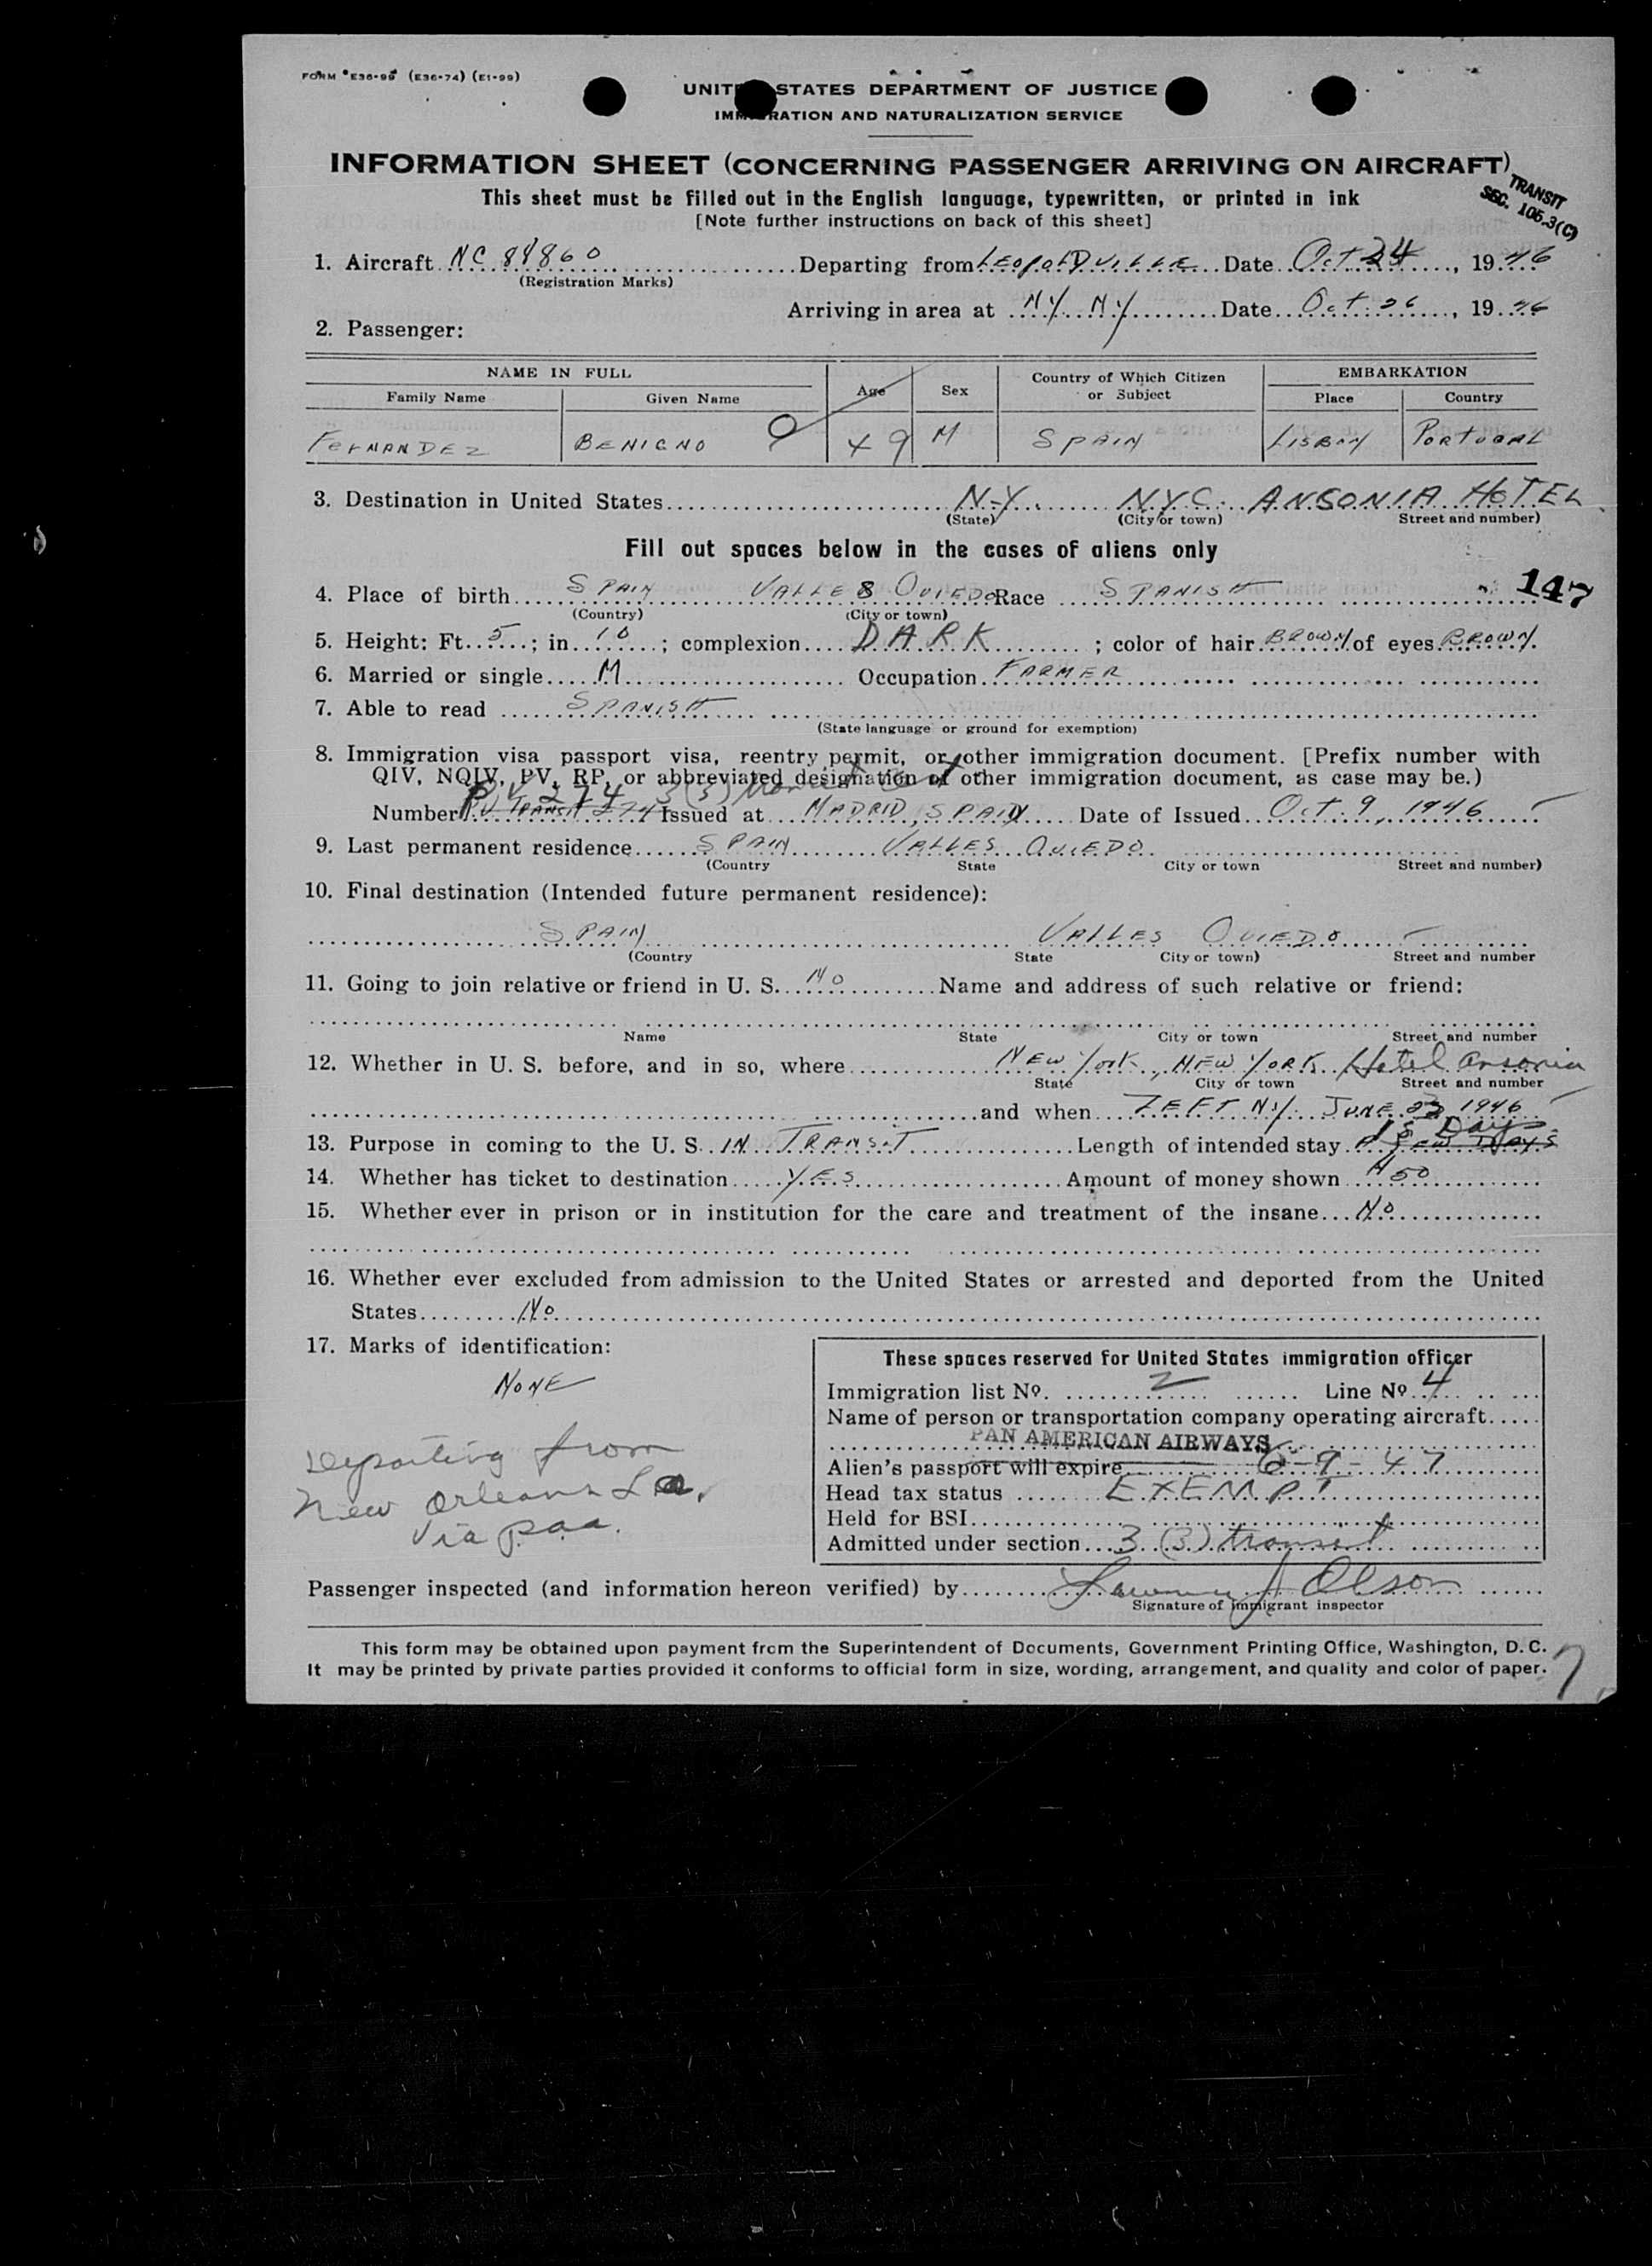 FORM "E36-99" (E36-74) (E1-99)
UNITED STATES DEPARTMENT OF JUSTICE
IMMIGRATION AND NATURALIZATION SERVICE
INFORMATION SHEET (CONCERNING PASSENGER ARRIVING ON AIRCRAFT)
This sheet must be filled out in the English language, typewritten, or printed in ink
[Note further instructions on back of this sheet]
TRANSIT
SEC. 105.3(C)
1. Aircraft NC 88860 Departing from LEOPOLDVILLE Date Oct 24, 1946
(Registration Marks)
Arriving in area at NY NY Date Oct. 26, 1946
2. Passenger:
NAME IN FULL Age Sex Country of Which Citizen or Subject EMBARKATION
Family Name Given Name Place Country
FERNANDEZ BENIGNO 49 M SPAIN LISBON PORTUGAL
3. Destination in United States N.Y. N.Y.C. ANSONIA HOTEL
(State) (City or town) Street and number)
Fill out spaces below in the cases of aliens only
4. Place of birth SPAIN VALLES OVIEDO Race SPANISH
147
(Country) (City or town)
5. Height: Ft. 5; in 10; complexion DARK; color of hair BROWN of eyes BROWN.
6. Married or single M Occupation FARMER
7. Able to read SPANISH
(State language or ground for exemption)
8. Immigration visa passport visa, reentry permit, or other immigration document. [Prefix number with
QIV, NQIV, PV, RP, or abbreviated designation of other immigration document, as case may be.)
PV 274 3(3) transit
Number PV TRANSIT 274 Issued at MADRID, SPAIN Date of Issued Oct. 9, 1946
9. Last permanent residence SPAIN VALLES OVIEDO
(Country State City or town Street and number)
10. Final destination (Intended future permanent residence):
SPAIN VALLES OVIEDO
(Country State City or town) Street and number
11. Going to join relative or friend in U. S. NO Name and address of such relative or friend:
Name State City or town Street and number
12. Whether in U. S. before, and in so, where NEW YORK, NEW YORK Hotel Ansonia
State City or town Street and number
and when LEFT NY. JUNE 23 1946
13. Purpose in coming to the U. S. IN TRANSIT Length of intended stay A FEW DAYS 15 Days
14. Whether has ticket to destination YES Amount of money shown 50
15. Whether ever in prison or in institution for the care and treatment of the insane NO
16. Whether ever excluded from admission to the United States or arrested and deported from the United
States NO
17. Marks of identification:
NONE
Departing from
New Orleans La.
via paa.
These spaces reserved for United States immigration officer
Immigration list No. 2 Line No 4
Name of person or transportation company operating aircraft
PAN AMERICAN AIRWAYS
Alien's passport will expire 6-9-47
Head tax status EXEMPT
Held for BSI
Admitted under section 3 (3) transit
Passenger inspected (and information hereon verified) by J Olson
Signature of immigrant inspector
This form may be obtained upon payment from the Superintendent of Documents, Government Printing Office, Washington, D. C.
It may be printed by private parties provided it conforms to official form in size, wording, arrangement, and quality and color of paper.
7